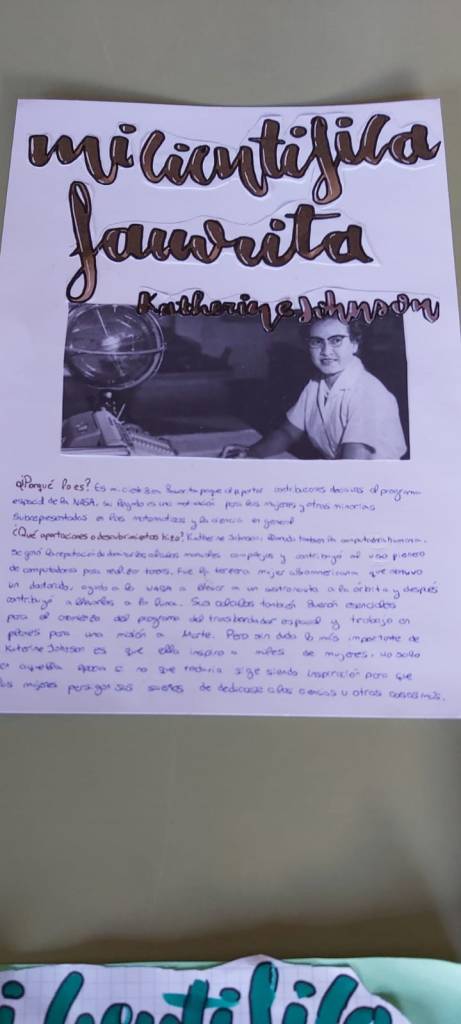 mi científica
fauvrita
Katherine Johnson
¿Porqué lo es? Es mi científica favorita porque al aportar contribuciones decisivas al programa
espacial de la NASA, su legado es una motivación para las mujeres y otras minorias
subrepresentadas en las matematicas y la ciencia en general
¿Qué aportaciones o descubrimientos hizo? Katherine Johnson, llamada también la computadora humana.
Se ganó la reputación de dominar los calculos manuales complejos y contribuyó al uso pionero
de computadoras para realizar tareas. Fue la tercera mujer afroamericana que obtuvo
un doctorado, ayudo a la NASA a enviar un astronauta a la órbita y después
contribuyó a llevarlos a la luna. Sus calculos también fueron esenciales
para el comienzo del programa del transbordador espacial y trabajo en
planes para una misión a Marte. Pero sin duda lo más importante de
Katerine Johnson es que ella inspiro a miles de mujeres, no solo
en aquella época si no que todavia sige siendo inspiración para que
las mujeres persigan sus sueños de dedicarse a las ciencias u otras cosas más.
mi científica